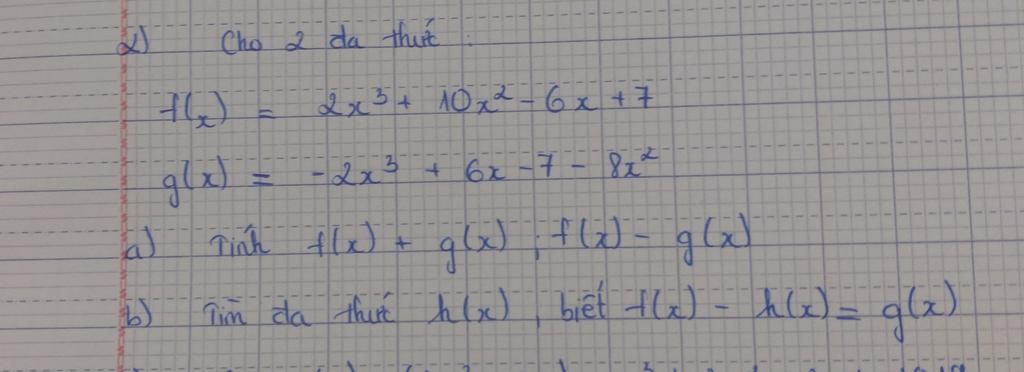 2) Cho 2 đa thức :
f(x) = 2x³ + 10x² - 6x + 7
g(x) = -2x³ + 6x - 7 - 8x²
a) Tính f(x) + g(x) , f(x) - g(x)
b) Tìm đa thức h(x) , biết f(x) - h(x) = g(x)